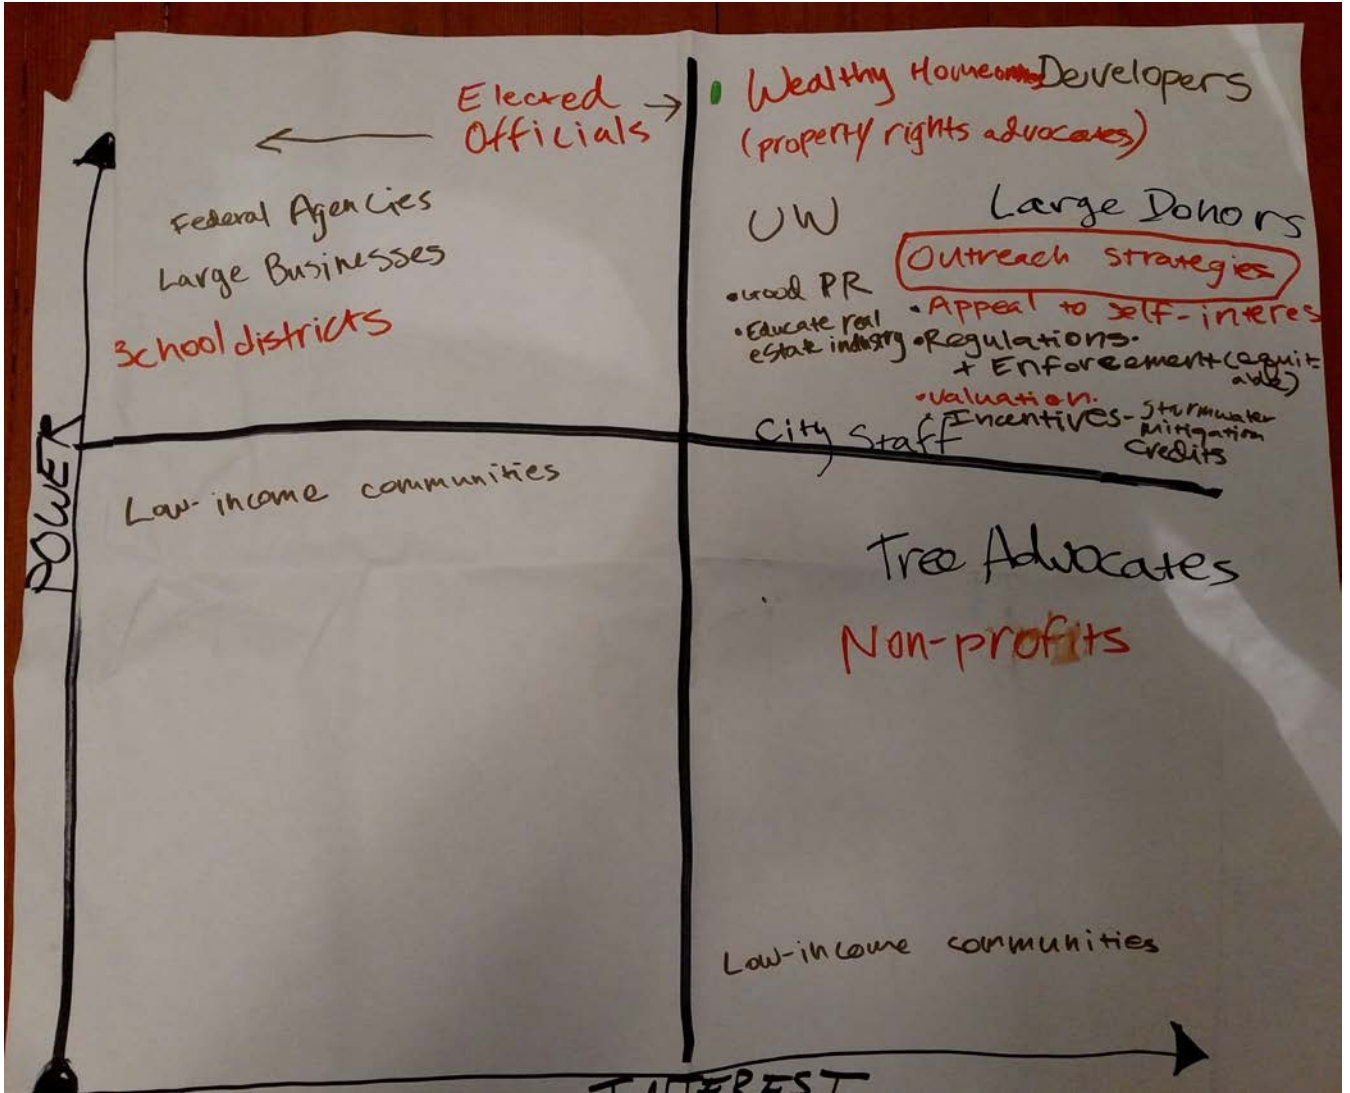 Elected
Officials
Federal Agencies
Large Businesses
School districts
Wealthy Developers
(property rights advocates)
UW
Large Donors
Outreach strategies
• Good PR
• Educate real
estate industry
• Appeal to self-interes
• Regulations.
+ Enforcement (equit-
able)
• Valuation.
Incentives - Stormwater
Mitigation
Credits
City Staff
POWER
Low-income communities
Tree Advocates
Non-profits
Low-income communities
INTEREST